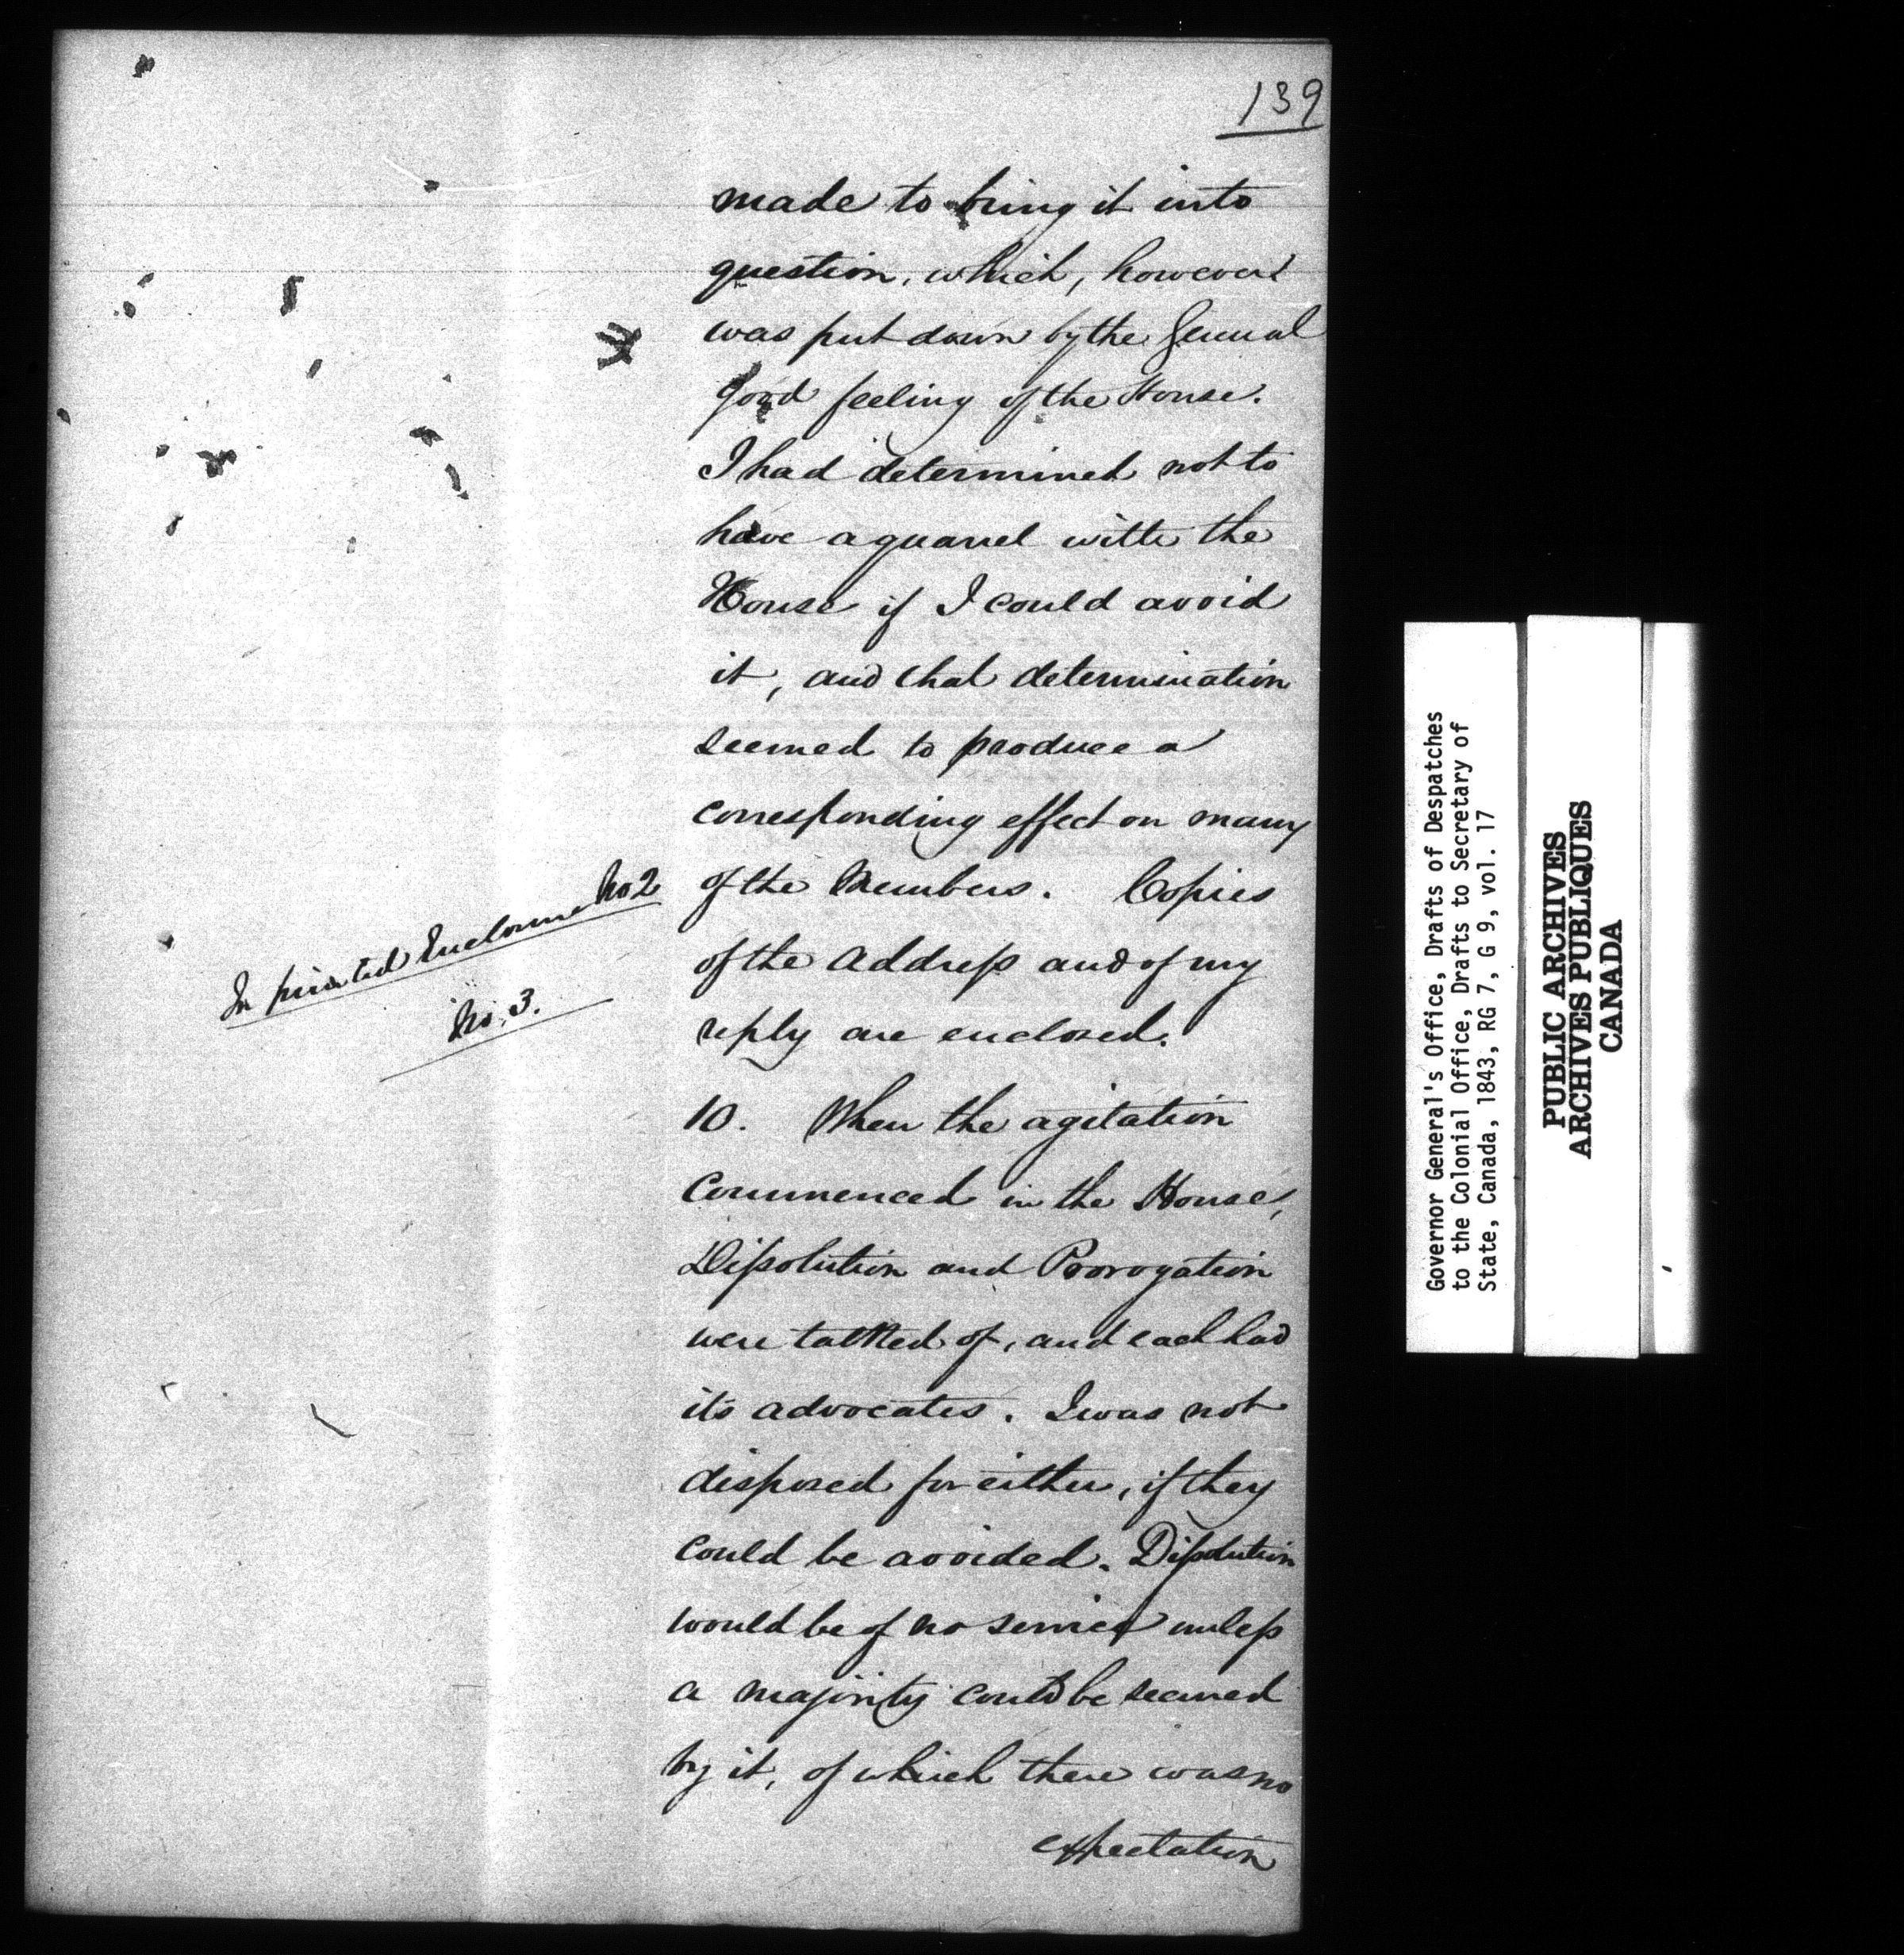 139
made to bring it into
question, which, however
was put down by the General
good feeling of the House.
I had determined not to
have a quarrel with the
House if I could avoid
it, and that determination
seemed to produce a
corresponding effect on many
of the Members. Copies
of the Address and of my
reply are enclosed.
In printed Enclosure No 2
No. 3.
10. When the agitation
commenced in the House,
Dissolution and Prorogation
were talked of, and each had
its advocates. I was not
disposed for either, if they
could be avoided. Dissolution
would be of no service unless
a majority could be secured
by it, of which there was no
expectation
Governor General's Office, Drafts of Despatches
to the Colonial Office, Drafts to Secretary of
State, Canada, 1843, RG 7, G 9, vol. 17
PUBLIC ARCHIVES
ARCHIVES PUBLIQUES
CANADA